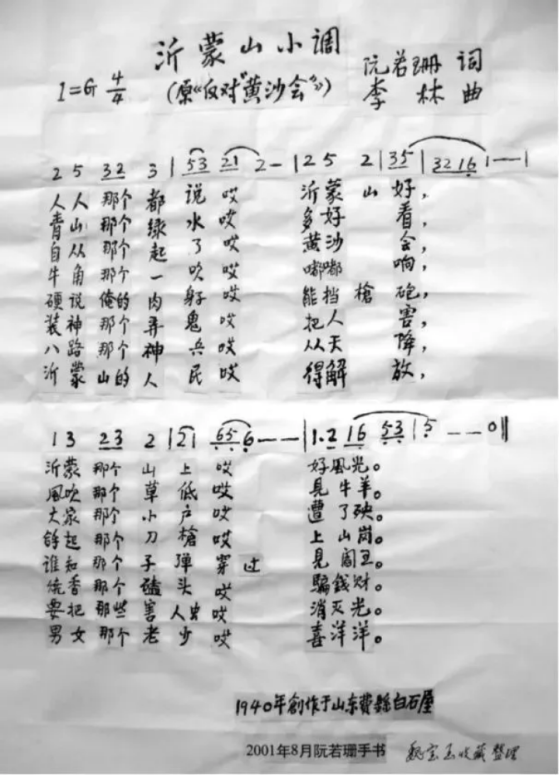 沂蒙山小调
(原《反对"黄沙会"》)
1=G 4/4
阮若珊 词
李林 曲
2 5 32 3 | 53 21 2 - | 2 5 2 | 35 | 32 16 | 1 - - |
人人那个都说哎 沂蒙山好,
青山那个绿水哎 多好看,
自从那个起了哎 黄沙会,
牛角那个一吹哎 嘟嘟响,
硬说俺的肉身哎 能挡槍砲,
装神那个弄鬼哎 把人害,
八路那个神兵哎 从天降,
沂蒙山的人民哎 得解放,
1 3 23 2 | 21 65 6 - - | 1·2 16 53 | 5 - - 0 ‖
沂蒙那个山上哎 好風光。
風吹那个草低哎 見牛羊。
大家那个小户哎 遭了殃。
起那个刀槍哎 上山岗。
谁知那个子弹穿过 見阎王。
烧香那个磕头哎 騙錢财。
要把那些害人虫哎 消灭光。
男女那个老少哎 喜洋洋。
1940年創作于山东费縣白石屋
2001年8月阮若珊手书 收藏整理